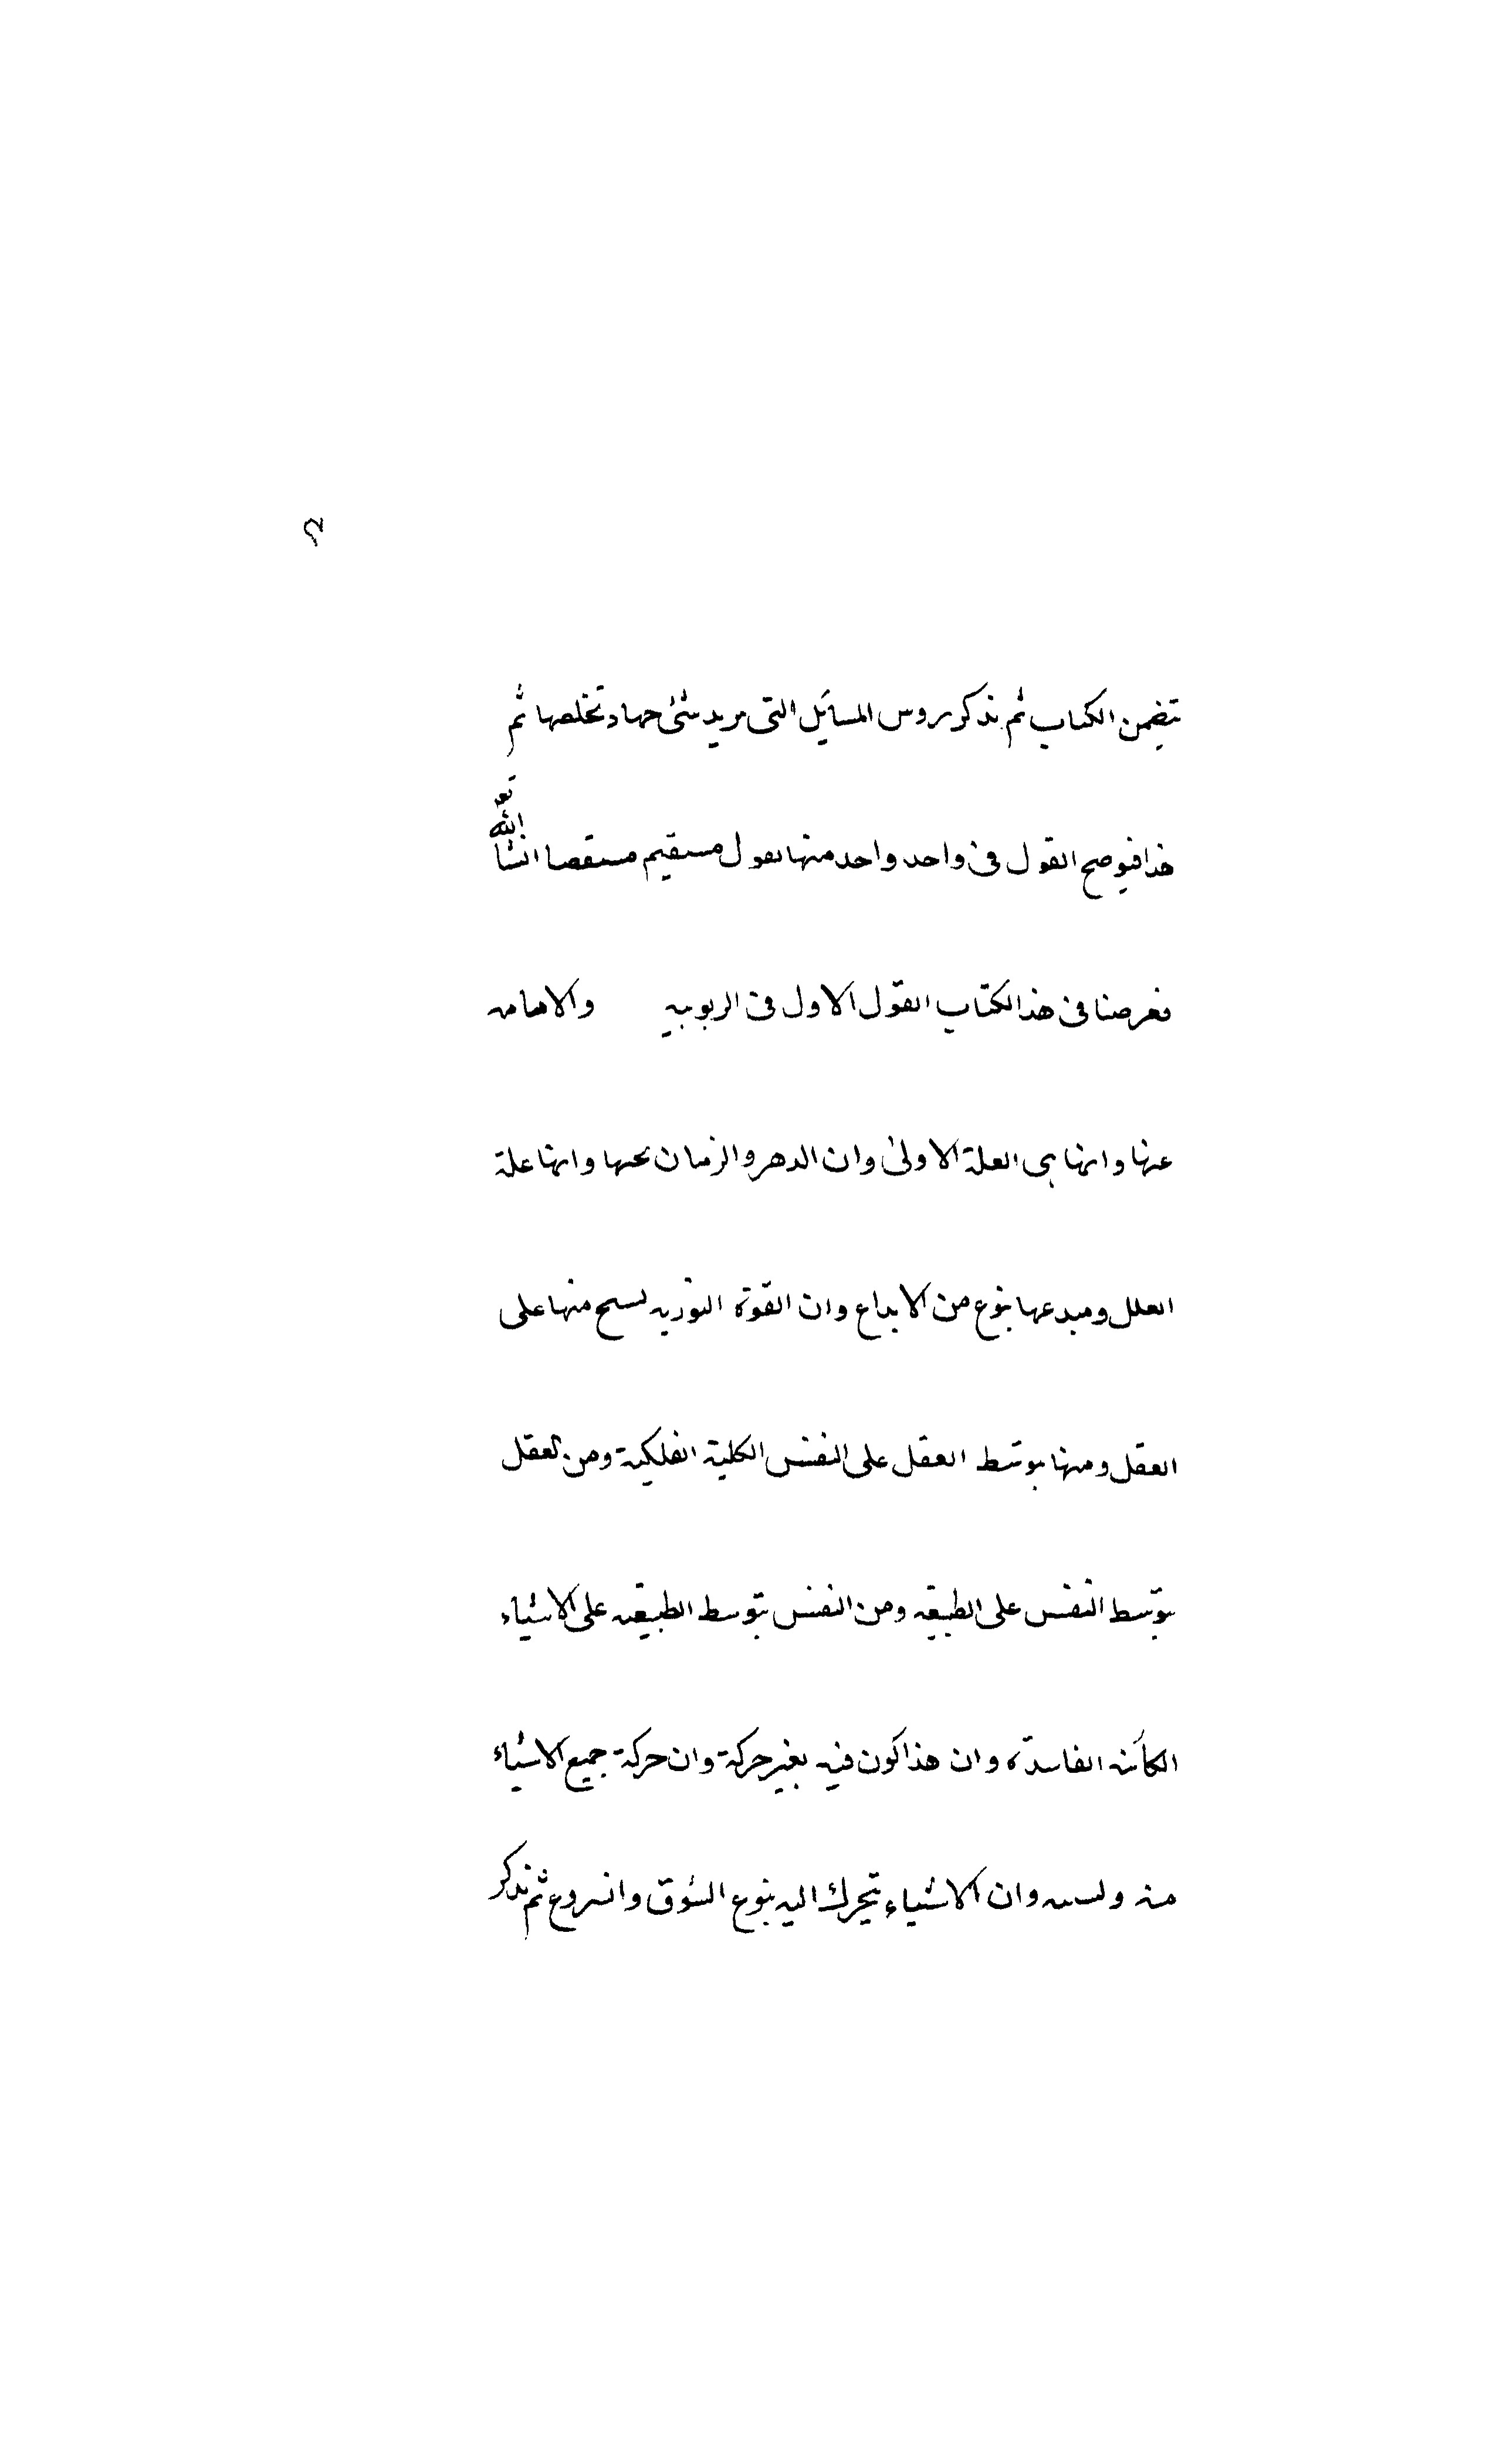 تضمن الكتاب ثم نذكر روس المسايل التى نريد شئ حها و تخلصها ثم
هذا فيوضح القول فى واحد واحد منها بقول مستقيم مستقصا انشا الله تعـ
فغرضنا فى هذا الكتاب القول الاول فى الربوبيه والابانه
عنها وانها هى العلة الاولى وان الدهر والزمان تحتها وانها علة
العلل ومبدعها بنوع من الابداع وان القوة النوريه تسنح منها على
العقل ومنها بتوسط العقل على النفس الكلية الفلكية ومن العقل
بتوسط النفس على الطبيعه ومن النفس بتوسط الطبيعه على الاشياء
الكائنه الفاسدة وان هذا كون فيه بغير حركة وان حركة جميع الاشياء
منه وبسببه وان الاشياء تتحرك اليه بنوع الشوق وانسروع ثم نذكر